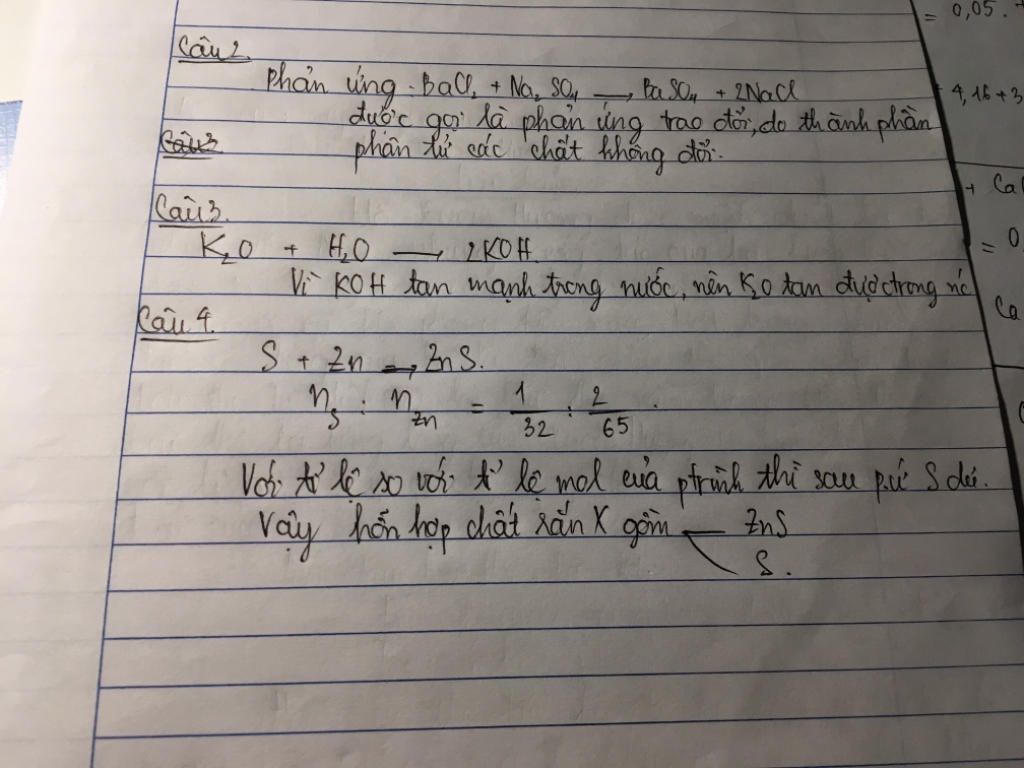 Câu 2.
Phản ứng. BaCl₂ + Na₂SO₄ → BaSO₄ + 2NaCl
được gọi là phản ứng trao đổi, do thành phần
Câu 3
phân tử các chất không đổi.
Câu 3.
K₂O + H₂O → 2KOH.
Vì KOH tan mạnh trong nước, nên K₂O tan được trong nc
Câu 4.
S + Zn → ZnS.
nS : nZn = 1/32 : 2/65.
Với tỉ lệ so với tỉ lệ mol của ptrình thì sau pứ S dư.
Vậy hỗn hợp chất rắn X gồm ZnS
S.
= 0,05.
4,16 + 3
+ Ca
= 0
Ca